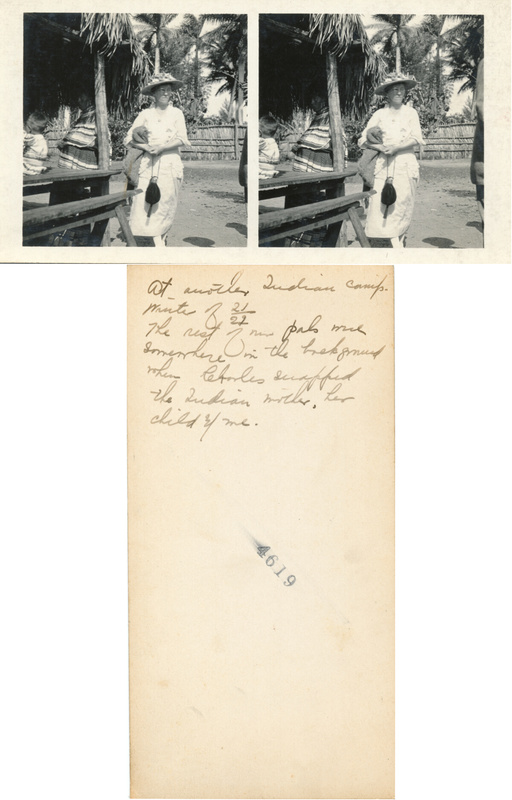 At another Indian camp.
Winter of 21/22
The rest of our pals were
somewhere in the background
when Charles snapped
the Indian mother, her
child & me.
4619